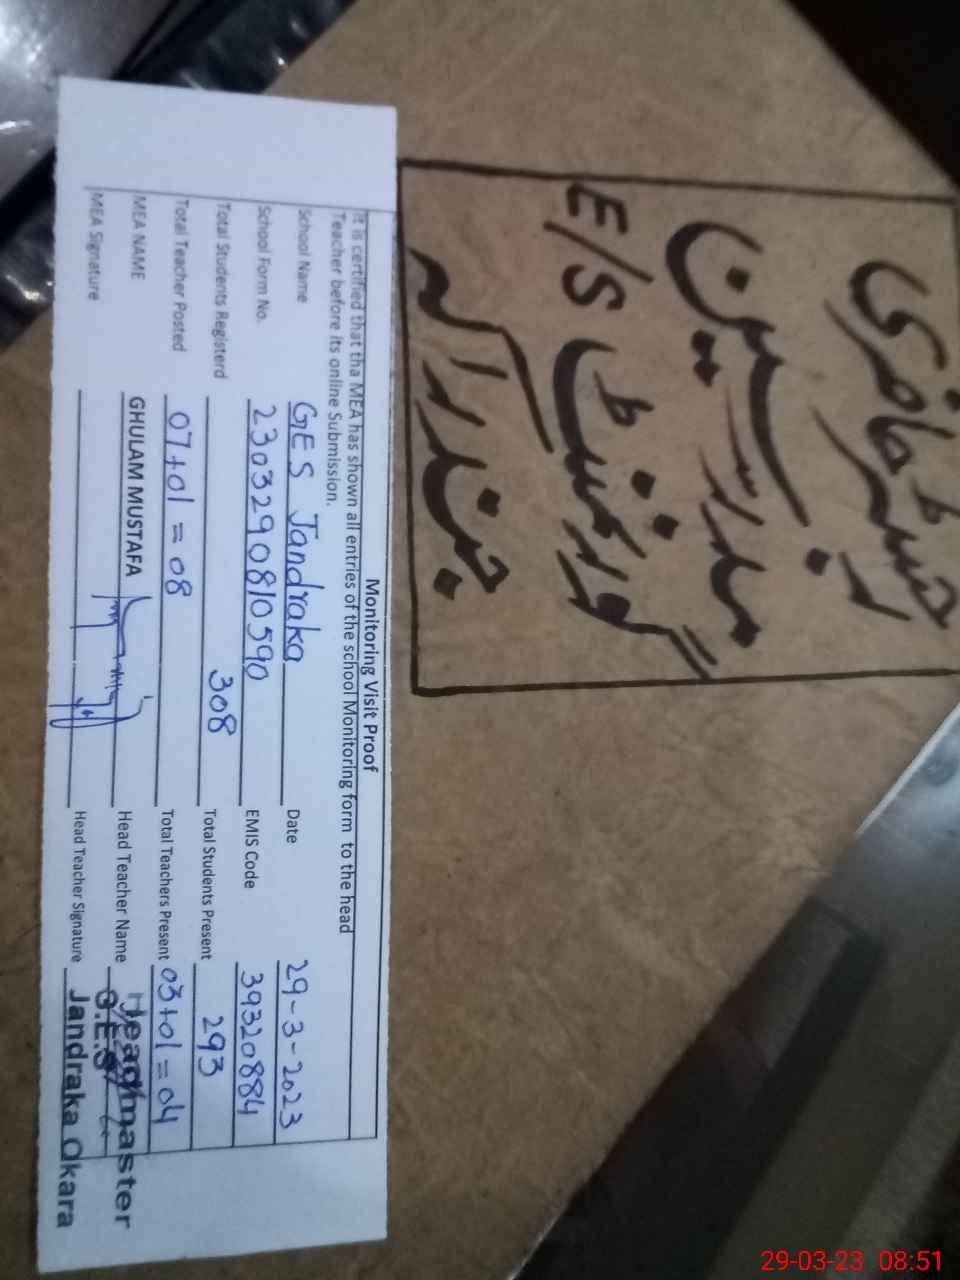 رجسٹر حاضری
مدرسین
گورنمنٹ E/S
جندراکہ
Monitoring Visit Proof
It is certified that tha MEA has shown all entries of the school Monitoring form to the head
Teacher before its online Submission.
School Name GES Jandraka Date 29-3-2023
School Form No. 2303290810590 EMIS Code 39320884
Total Students Registerd 308 Total Students Present 293
Total Teacher Posted 07+01=08 Total Teachers Present 03+01=04
MEA NAME GHULAM MUSTAFA Head Teacher Name Headmaster
MEA Signature Head Teacher Signature G.E.S
Jandraka Okara
29-03-23 08:51